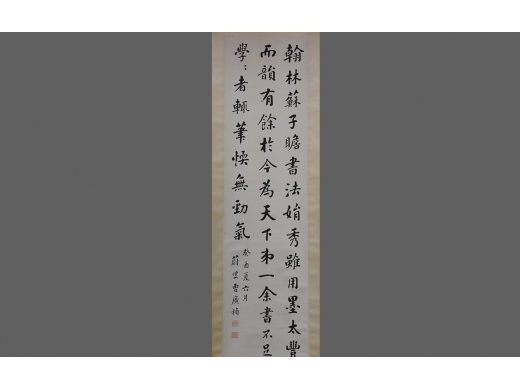 翰林蘇子瞻書法娟秀雖用墨太豐
而韻有餘於今為天下第一余書不足
學：者輒筆愞無勁氣
癸酉夏六月
蔚里曹廣楨